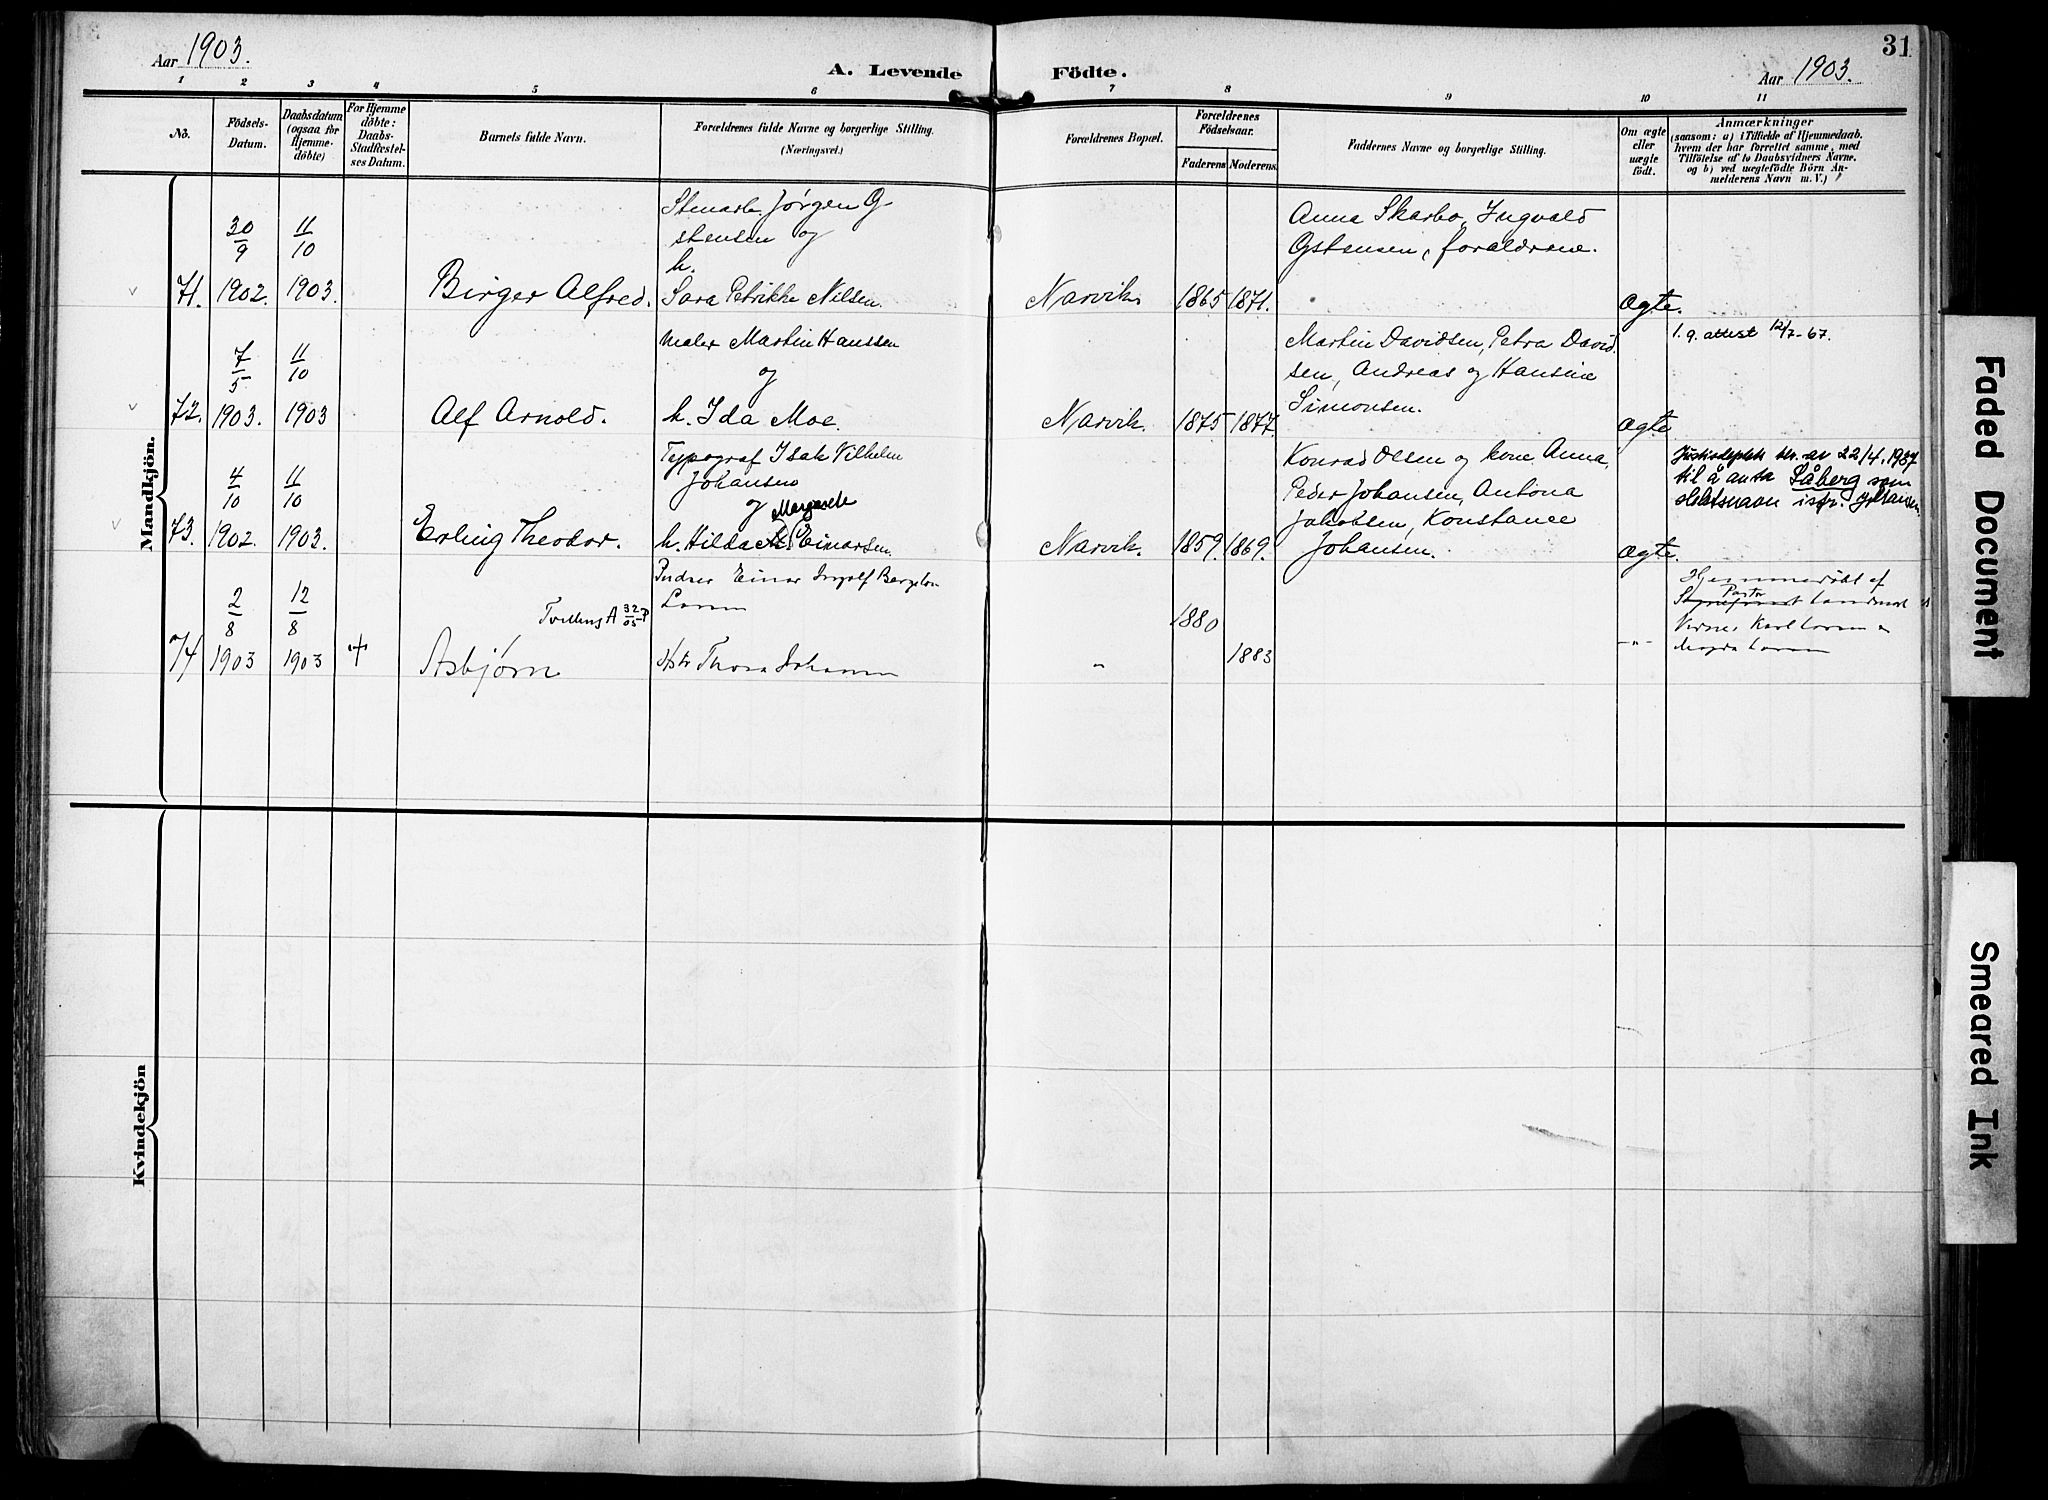 Aar 1903.
A. Levende Födte.
Aar 1903.
31
1 2 3 4 5 6 7 8 9 10 11
No.
Födsels-
Datum.
Daabsdatum
(ogsaa for
Hjemme-
döbte)
For Hjemme
döbte:
Daabs-
Stadfæstel-
ses Datum.
Barnets fulde Navn.
Forældrenes fulde Navne og borgerlige Stilling.
(Næringsvei.)
Forældrenes Bopæl.
Forældrenes
Födselsaar.
Faderens Moderens
Faddernes Navne og borgerlige Stilling.
Om ægte
eller
uægte
födt.
Anmærkninger
(saasom: a) i Tilfælde af Hjemmedaab.
hvem der har forrettet samme, med
Tilföielse af to Daabsvidners Navne.
og b) ved uægtefödte Börn An-
melderens Navn m. V.)
Mandkjön.
71.
30
9
1902.
11
10
1903.
Birger Alfred.
Stenarb. Jørgen G
stensen og
h.
Sara Petrikke Nilsen.
Narvik
1865 1871.
Anna Skarbo, Ingvald
Gstensen, forældrene.
ægte.
72.
7
5
1903.
11
10
1903
Alf Arnold.
Maler Martin Hanssen
og
h. Ida Moe.
Narvik.
1875 1877
Martin Davidsen, Petra David
sen, Andreas og Hansine
Simonsen.
ægte
l. g. attest 12/7-67.
73.
4
10
1902.
11
10
1903.
Erling Theodor.
Typograf Isak Vilhelm
Johansen
og Margarete
h. Hilda Einarsen.
Narvik.
1859. 1869.
Konrad Olsen og kone Anna,
Peder Johansen, Antona
Jakobsen, Konstance
Johansen.
ægte.
av 22/4.1937
til å anta Såberg som
slektsnavn istf. Johansen.
74
2
8
1903
12
8
1903
+
Tvilling
Asbjørn
Einar Ingolf
Larsen
Thora Johansen
"
1880
1883
-"-
Hjemmedøbt af
Pastor
Karl Larsen
Magda Larsen
Kvindekjön
Faded Document
Smeared Ink